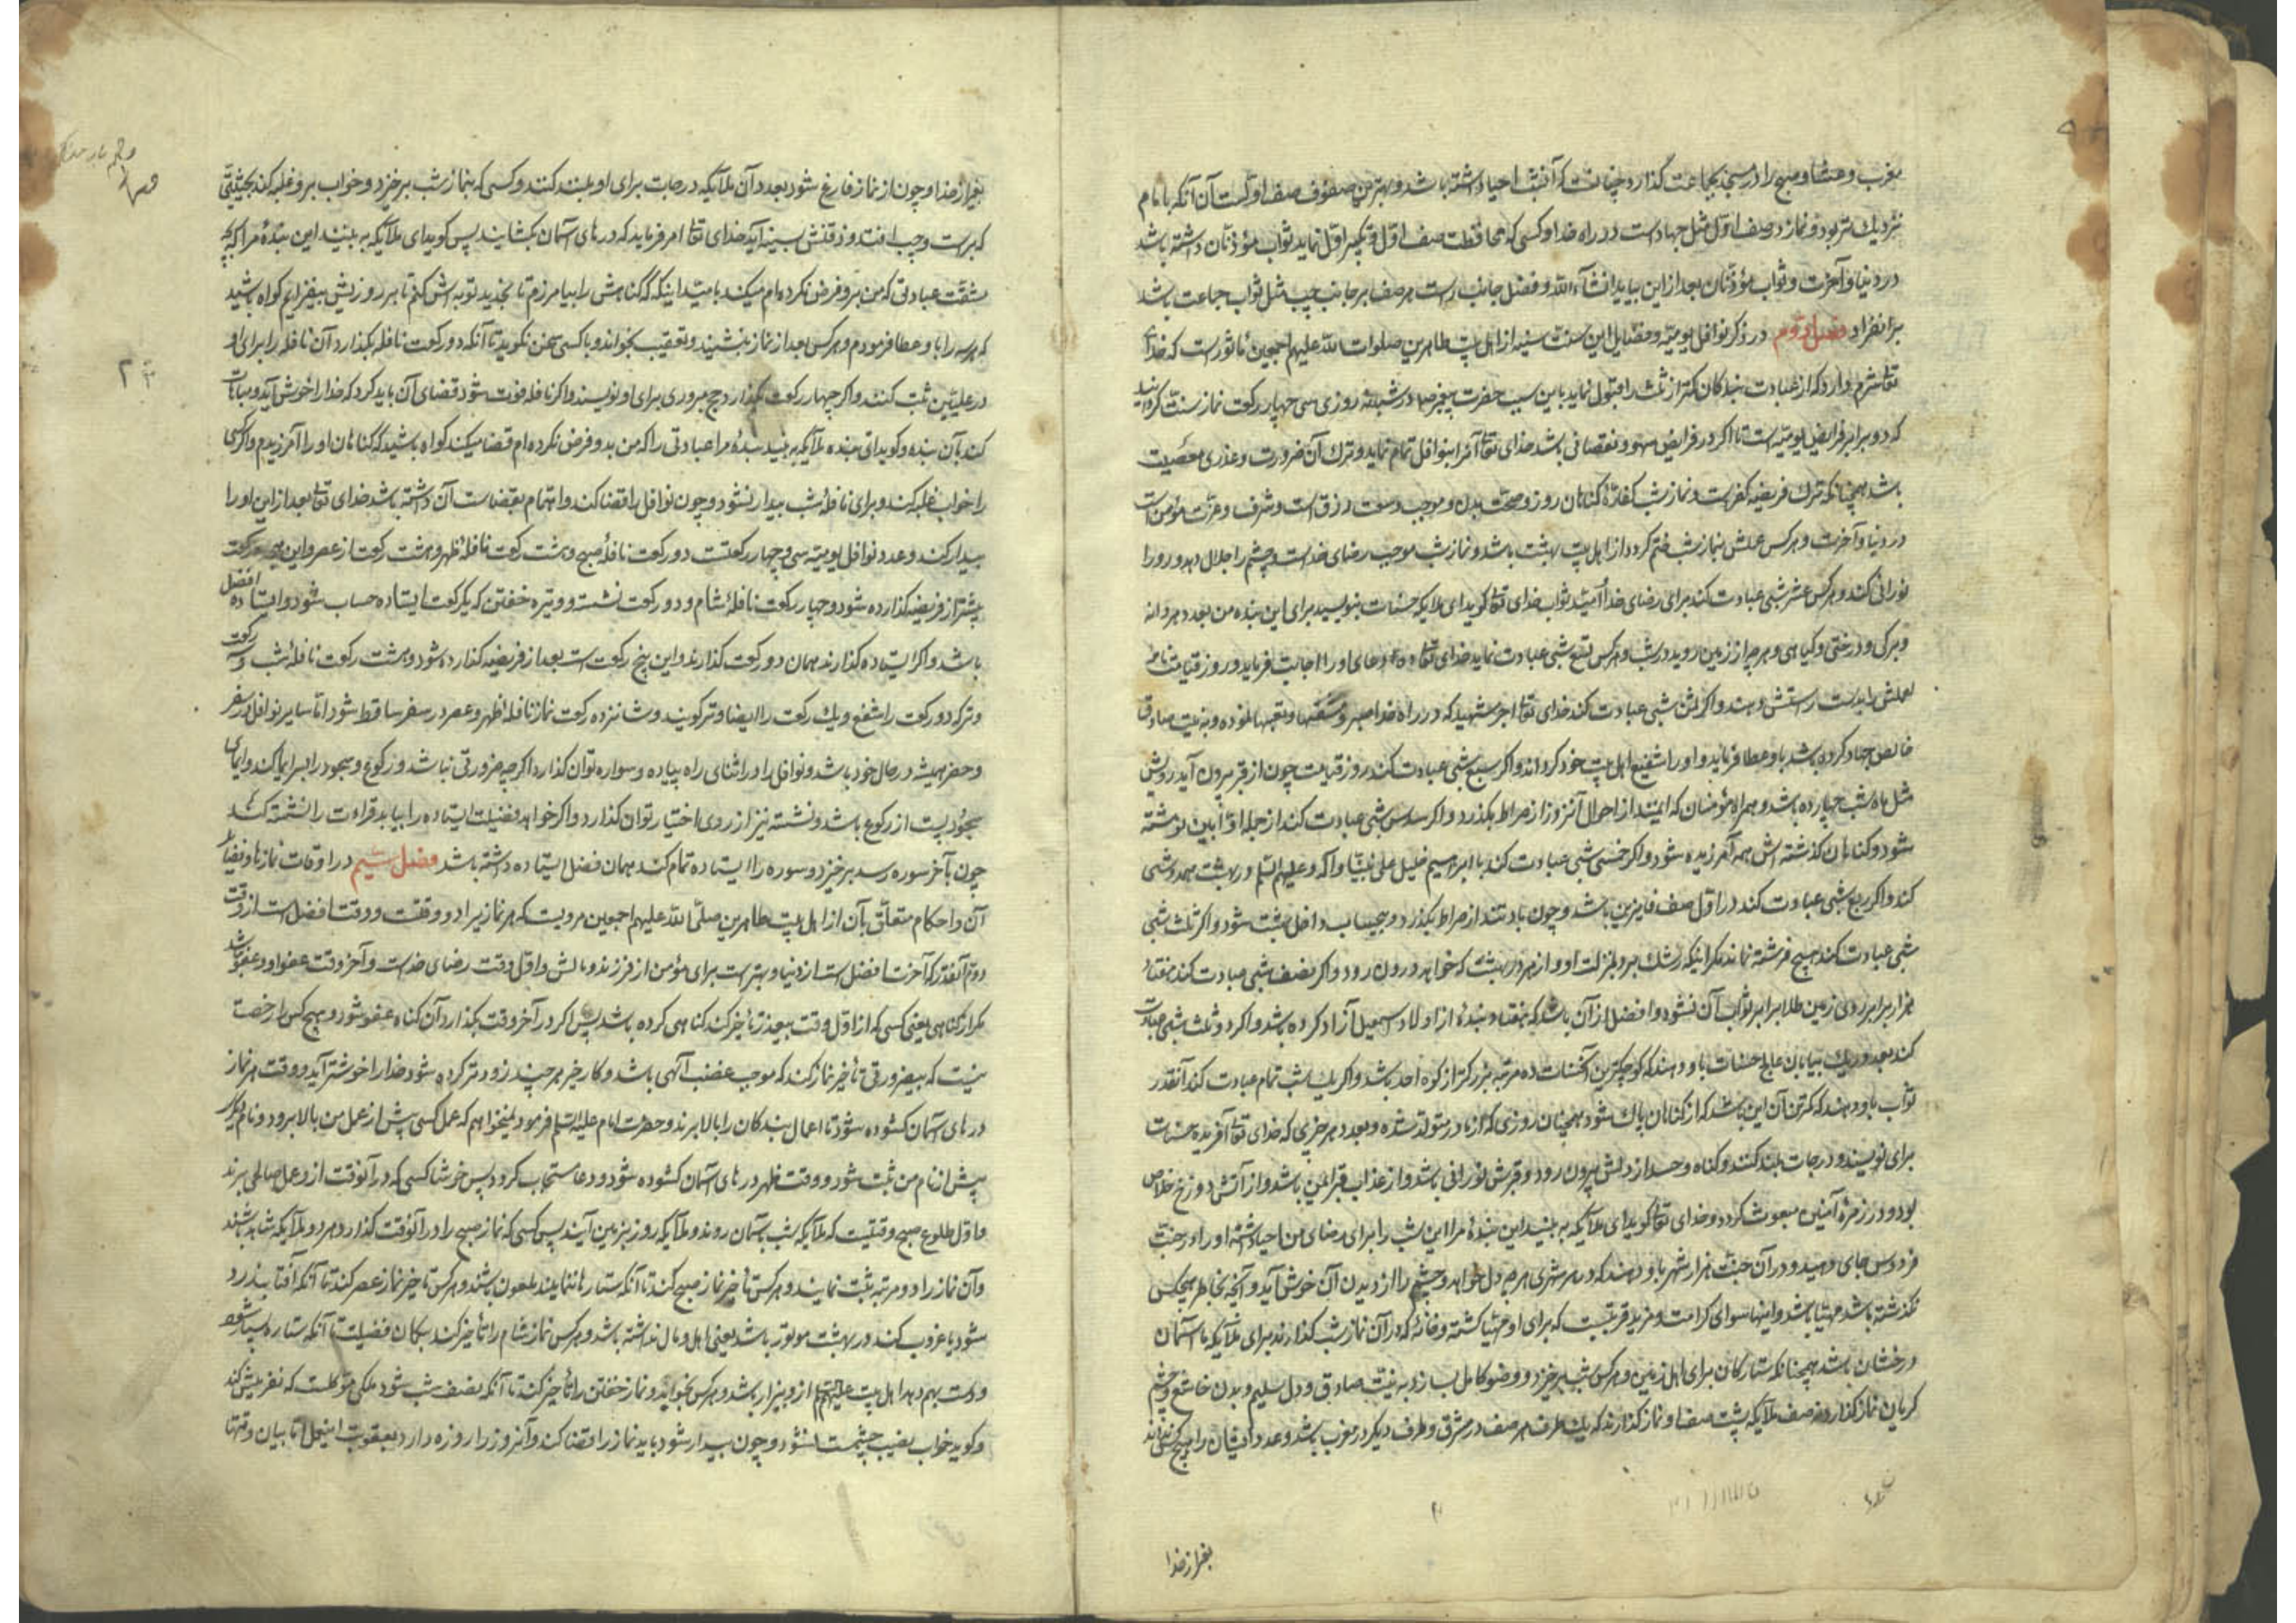 مغرب و عشا و صبح را در مسجد بجماعت گذارد چنانست که آنشب احیا داشته باشد و بهترین صفوف صف اولست آن آنکه با امام
نزدیک تر بود و نماز در صف اول مثل جهاد است در راه خدا و کسی که محافظت صف اول و تکبیر اول نماید ثواب مؤذنان داشته باشد
در دنیا و آخرت و ثواب مؤذنان بعد از این بیاید انشاء الله و فضل جانب راست هر صف بر جانب چپ مثل ثواب جماعت باشد
بر انفراد فصل دوم در ذکر نوافل یومیه و فضایل این سنت سنیه از اهل بیت طاهرین صلوات الله علیهم اجمعین ماثورست که خدای
تعالی شرم دارد که از عبادت بندگان کمتر از ثلث را قبول نماید باین سبب حضرت پیغمبر در شبانه روزی سی چهار رکعت نماز سنت کردانید
که دو برابر فرایض یومیه است تا اگر در فرایض سهو و نقصانی باشد خدای تعالی آنرا بنوافل تمام نماید و ترک آن ضرورت و عذری معصیت
باشد همچنانکه ترک فریضه کفر است و نماز شب کفارهٔ گناهان روز و صحت بدن و موجب وسعت رزق است و شرف و عزت مؤمن است
در دنیا و آخرت و هر کس عملش بنماز شب ختم گردد از اهل بیت بهشت باشد و نماز شب موجب رضای خداست و چشم را جلال دهد و رو را
نورانی کند و هر کس عشر شبی عبادت کند برای رضای خدا امید ثواب خدای تعالی گوید ای ملایکه حسنات بنویسید برای این بنده من بعدد هر دانه
و برگی و درختی و گیاهی و هر چه از زمین روید در شب و هر کس تسع شبی عبادت نماید خدای تعالی ده دعای او را اجابت فرماید و روز قیامت نامه
عملش را بدست راستش دهند و اگر ثمن شبی عبادت کند خدای تعالی اجر شهیدی که در راه خدا صبر و مشقتها و تعبها نموده و به نیت صادق
خالص جهاد کرده باشد باو عطا فرماید و او را شفیع اهل بیت خود گرداند و اگر سبع شبی عبادت کند روز قیامت چون از قبر بیرون آید رویش
مثل ماه شب چهارده باشد و همراه مؤمنان که ایمنند از احوال آنروز از صراط بگذرد و اگر سدس شبی عبادت کند از جمله اوابین نوشته
شود و گناهان گذشته اش همه آمرزیده شود و اگر خمس شبی عبادت کند با ابراهیم خلیل علی نبینا و آله و علیهم السلم در بهشت همدوشی
کند و اگر ربع شبی عبادت کند در اول صف فایزین باشد و چون باد تند از صراط بگذرد و بیحساب داخل بهشت شود و اگر ثلث شبی
شبی عبادت کند هیچ فرشته نماند مگر اینکه رشک برد بمنزلت او و از هر در بهشت که خواهد درون رود و اگر نصف شبی عبادت کند هفتاد
هزار برابر روی زمین طلا برابر ثواب آن نشود و افضل از آن باشد که هفتاد بنده از اولاد اسمعیل آزاد کرده باشد و اگر دو ثلث شبی عبادت
کند بعدد ریک بیابان عالج حسنات باو دهند که کوچکترین آنحسنات ده مرتبه بزرگتر از کوه احد باشد و اگر یک شب تمام عبادت کند آنقدر
ثواب باو دهند که کمترین آن این باشد که از گناهان پاک شود همچنان روزی که از مادر متولد شده و بعدد هر چیزی که خدای تعالی آفریده حسنات
برای نویسند و درجات بلند کنند و گناه و حسد از دلش بیرون رود و قبرش نورانی باشد و از عذاب قبر ایمن باشد و از آتش دوزخ خلاص
بود و در زمرهٔ آمنین مبعوث گردد و خدای تعالی گوید ای ملایکه به بینید این بندهٔ مرا این شب را برای رضای من احیا داشته او را در جنت
فردوس جای دهید و در آن جنت هزار شهر باو دهند که در هر شهری هر چه دل خواهد و چشم را از دیدن آن خوش آید و آنچه بخاطر هیچکس
نگذشته باشد مهیا باشد و اینها سوای کرامت و مزید قربتیست که برای او مهیا گشته و خانهٔ که در آن نماز شب گذارند برای ملایکه با آسمان
درخشان باشد همچنانکه ستارگان برای اهل زمین و هر کس شب برخیزد و وضو کامل بسازد به نیت صادق و دل سلیم و بدن خاشع و چشم
گریان نماز گذارد نه صف ملایکه پشت صف او نماز گذارند که یک طرف هر صف در مشرق و طرف دیگر در مغرب باشد و عدد ایشان را هیچکس نداند
بغیر از خدا
بغیر از خدا و چون از نماز فارغ شود بعدد آن ملایکه درجات برای او بلند کنند و کسی که بنماز شب برخیزد و خواب برو غلبه کند بحیثیتی
که براست و چپ افتد و ذقنش بسینه آید خدای تعالی امر فرماید که درهای آسمان بگشایند پس گوید ای ملایکه به بینید این بندهٔ مرا که بچه
مشقت عبادتی که من برو فرض نکرده ام میکند بامید اینکه که گناهش را بیامرزم تا تجدید توبه اش کنم تا بر روزیش بیفزایم گواه باشید
که هر سه را باو عطا فرمودم و هر کس بعد از نماز بنشیند و تعقیب بخواند و با کسی سخن نگوید تا آنکه دو رکعت نافله بگذارد آن نافله را برای او
در علیین ثبت کنند و اگر چهار رکعت گذارد حج مبروری برای او نویسند و اگر نافله فوت شود قضای آن باید کرد که خدا را خوش آید و مباهات
کند بآن بنده و گوید ای ملایکه به بینید بندهٔ مرا عبادتی را که من بدو فرض نکرده ام قضا میکند گواه باشید که گناهان او را آمرزیدم و اگر کسی
را خواب غلبه کند و برای نافلهٔ شب بیدار نشود و چون نوافل را قضا کند و اهتمام بقضاست آن داشته باشد خدای تعالی بعد از این او را
بیدار کند و عدد نوافل یومیه سی و چهار رکعتست دو رکعت نافلهٔ صبح و هشت رکعت نافلهٔ ظهر و هشت رکعت از عصر و این
پیشتر از فریضه گذارده شود و چهار رکعت نافلهٔ شام و دو رکعت نشسته و وتیره خفتن که یک رکعت ایستاده حساب شود و ایستاده افضل
باشد و اگر ایستاده گذارند همان دو رکعت گذارند و این پنج رکعت است بعد از فریضه گذارده شود و هشت رکعت نافلهٔ شب و سه رکعت
وتر که دو رکعت را شفع و یک رکعت را ایضا وتر گویند و شانزده رکعت نماز نافله ظهر و عصر در سفر ساقط شود اما سایر نوافل در سفر
و حضر همیشه در حال خود باشد و نوافل را در اثنای راه پیاده و سواره توان گذارد اگر چه ضرورتی نباشد و رکوع و سجود را بسر ایما کند و ایمای
سجود پست از رکوع باشد و نشسته نیز از روی اختیار توان گذارد و اگر خواهد فضیلت ایستاده را بیابد قراءت را نشسته کند
چون بآخر سوره رسد برخیزد و سوره را ایستاده تمام کند همان فضل ایستاده داشته باشد فصل سیم در اوقات نمازها و فضایل
آن و احکام متعلق بآن از اهل بیت طاهرین صلی الله علیهم اجمعین مرویست که هر نماز را دو وقتست و وقت افضل است از وقت
دوم آنقدر که آخرت افضل است از دنیا و بهترست برای مؤمن از فرزند و مالش و اول وقت رضای خداست و آخر وقت عفو او و عفو نباشد
مگر از گناهی یعنی کسی که از اول وقت بیعذر تأخیر کند گناهی کرده باشد پس اگر در آخر وقت بگذارد آن گناه عفو شود و هیچ کس را رخصت
نیست که بیضرورتی تأخیر نماز کند که موجب غضب آلهی باشد و کار خیر هر چند زودتر کرده شود خدا را خوشتر آید و وقت هر نماز
درهای آسمان گشوده شود تا اعمال بندگان را بالا برند و حضرت امام علیه السلم فرمود نمیخواهم که عمل کسی پیش از عمل من بالا برود و نام دیگر
پیش از نام من ثبت شود و وقت ظهر درهای آسمان گشوده شود و دعا مستجاب گردد پس خوشا کسی که در آنوقت ازو عمل صالحی برند
و اول طلوع صبح وقتیست که ملایکه شب بآسمان روند و ملایکه روز بزمین آیند پس کسی که نماز صبح را در آنوقت گذارد هر دو ملایکه شاهد باشند
و آن نماز را دو مرتبه ثبت نمایند و هر کس تأخیر نماز صبح کند تا آنکه ستارها ننمایند ملعون باشد و هر کس تأخیر نماز عصر کند تا آنکه آفتاب زرد
شود یا غروب کند در بهشت موتور باشد یعنی اهل و مال نداشته باشد و هر کس نماز شام را تأخیر کند بگمان فضیلت تا آنکه ستاره بسیار شود
و دست بهم دهد اهل بیت علیهم السلم ازو بیزار باشد و هر کس بخوابد و نماز خفتن را تأخیر کند تا آنکه نصف شب شود ملکی موکلست که نفرینش کند
و گوید خواب نصیب چشمت نشود و چون بیدار شود باید نماز را قضا کند و آنروز را روزه دارد بعقوبت اینعمل اما بیان وقتها